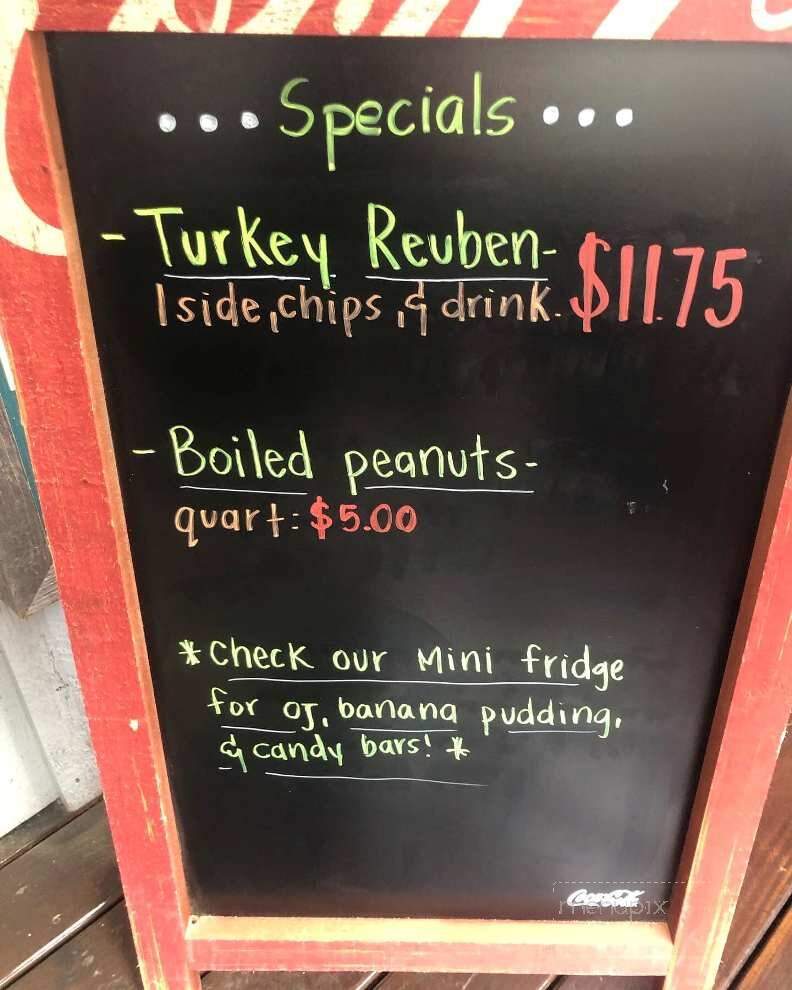 ... Specials ...
- Turkey Reuben- $11.75
1 side, chips, & drink.
- Boiled peanuts-
quart: $5.00
*Check our Mini fridge
for OJ, banana pudding,
& candy bars! *
Coca-Cola
menupix